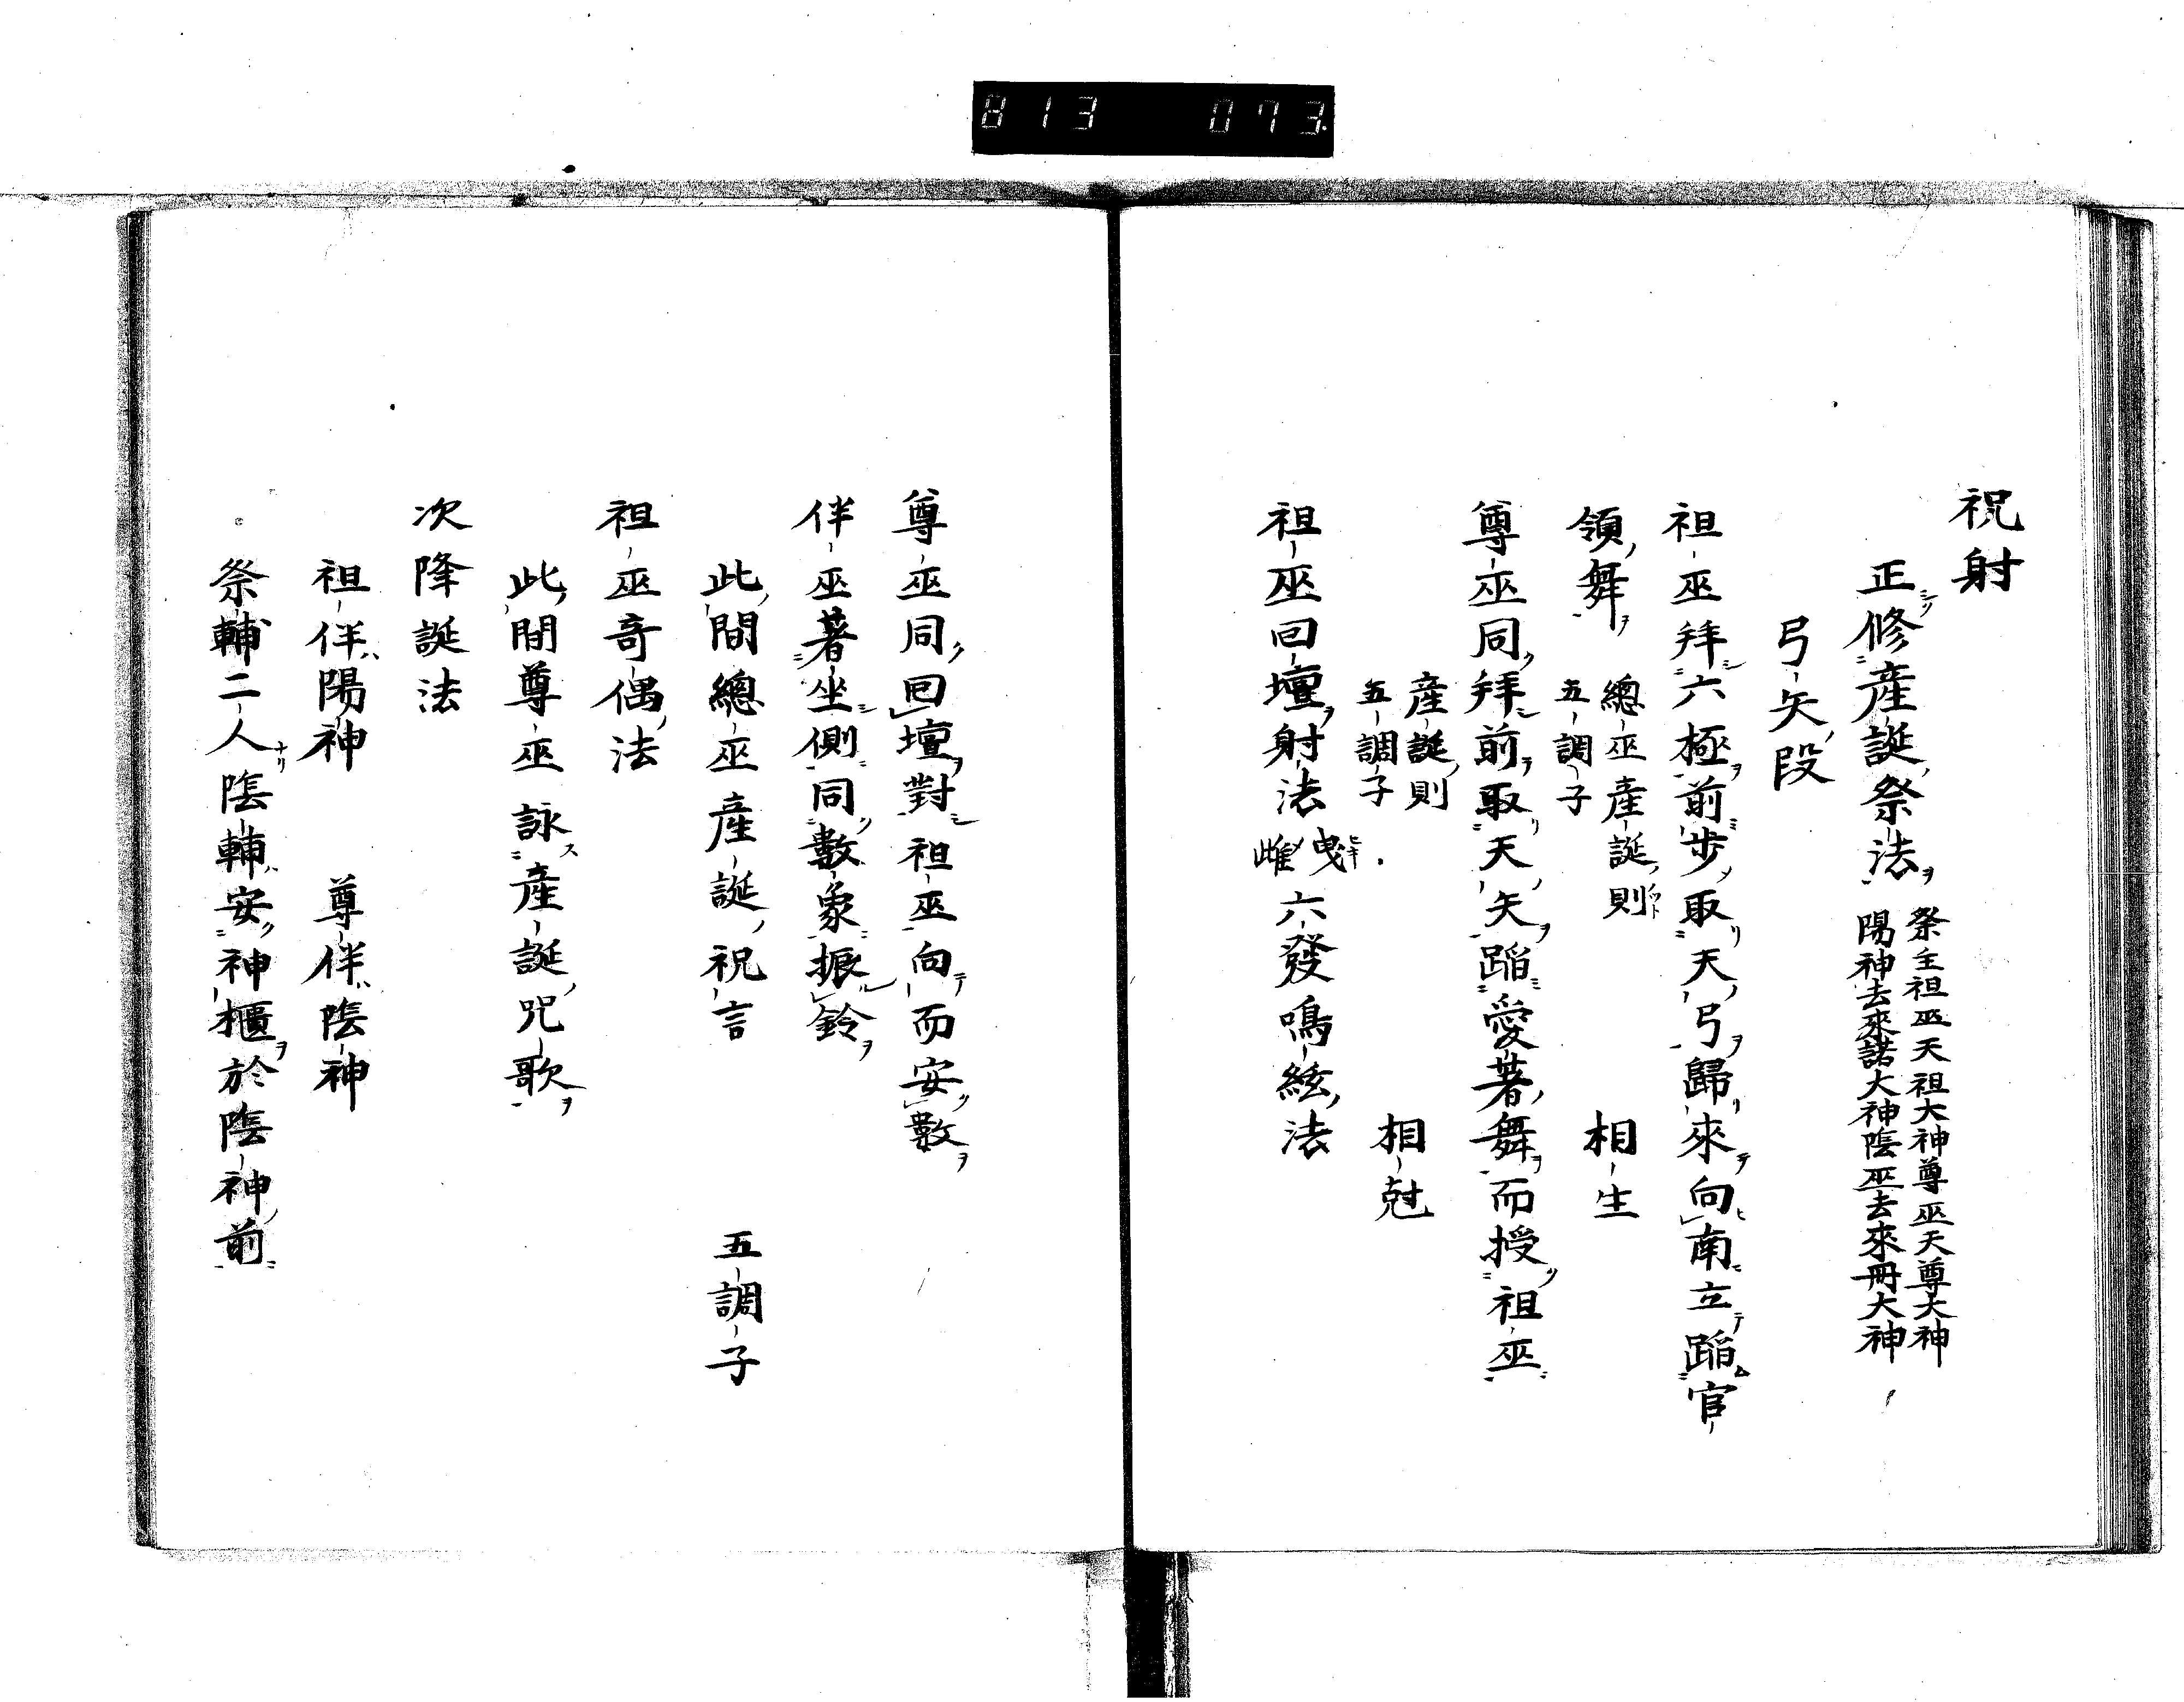 813 073.
祝射
正修産誕祭法
祭主祖巫天祖大神尊巫天尊大神
陽神去來諾大神陰巫去來冊大神
弓矢段
祖巫拜六極前歩取天弓歸來向南立蹈官
領舞
總巫産誕則
五調子
相生
尊巫同拜前取天矢蹈愛著舞而授祖巫
産誕則
五調子
相尅
祖巫回壇射法
曳
雌
六發鳴絃法
尊巫同回壇對祖巫向而安數
伴巫著坐側同數象振鈴
此間總巫産誕祝言 五調子
祖巫奇偶法
此間尊巫詠産誕咒歌
次降誕法
祖伴陽神 尊伴陰神
祭輔二人陰輔安神櫃於陰神前